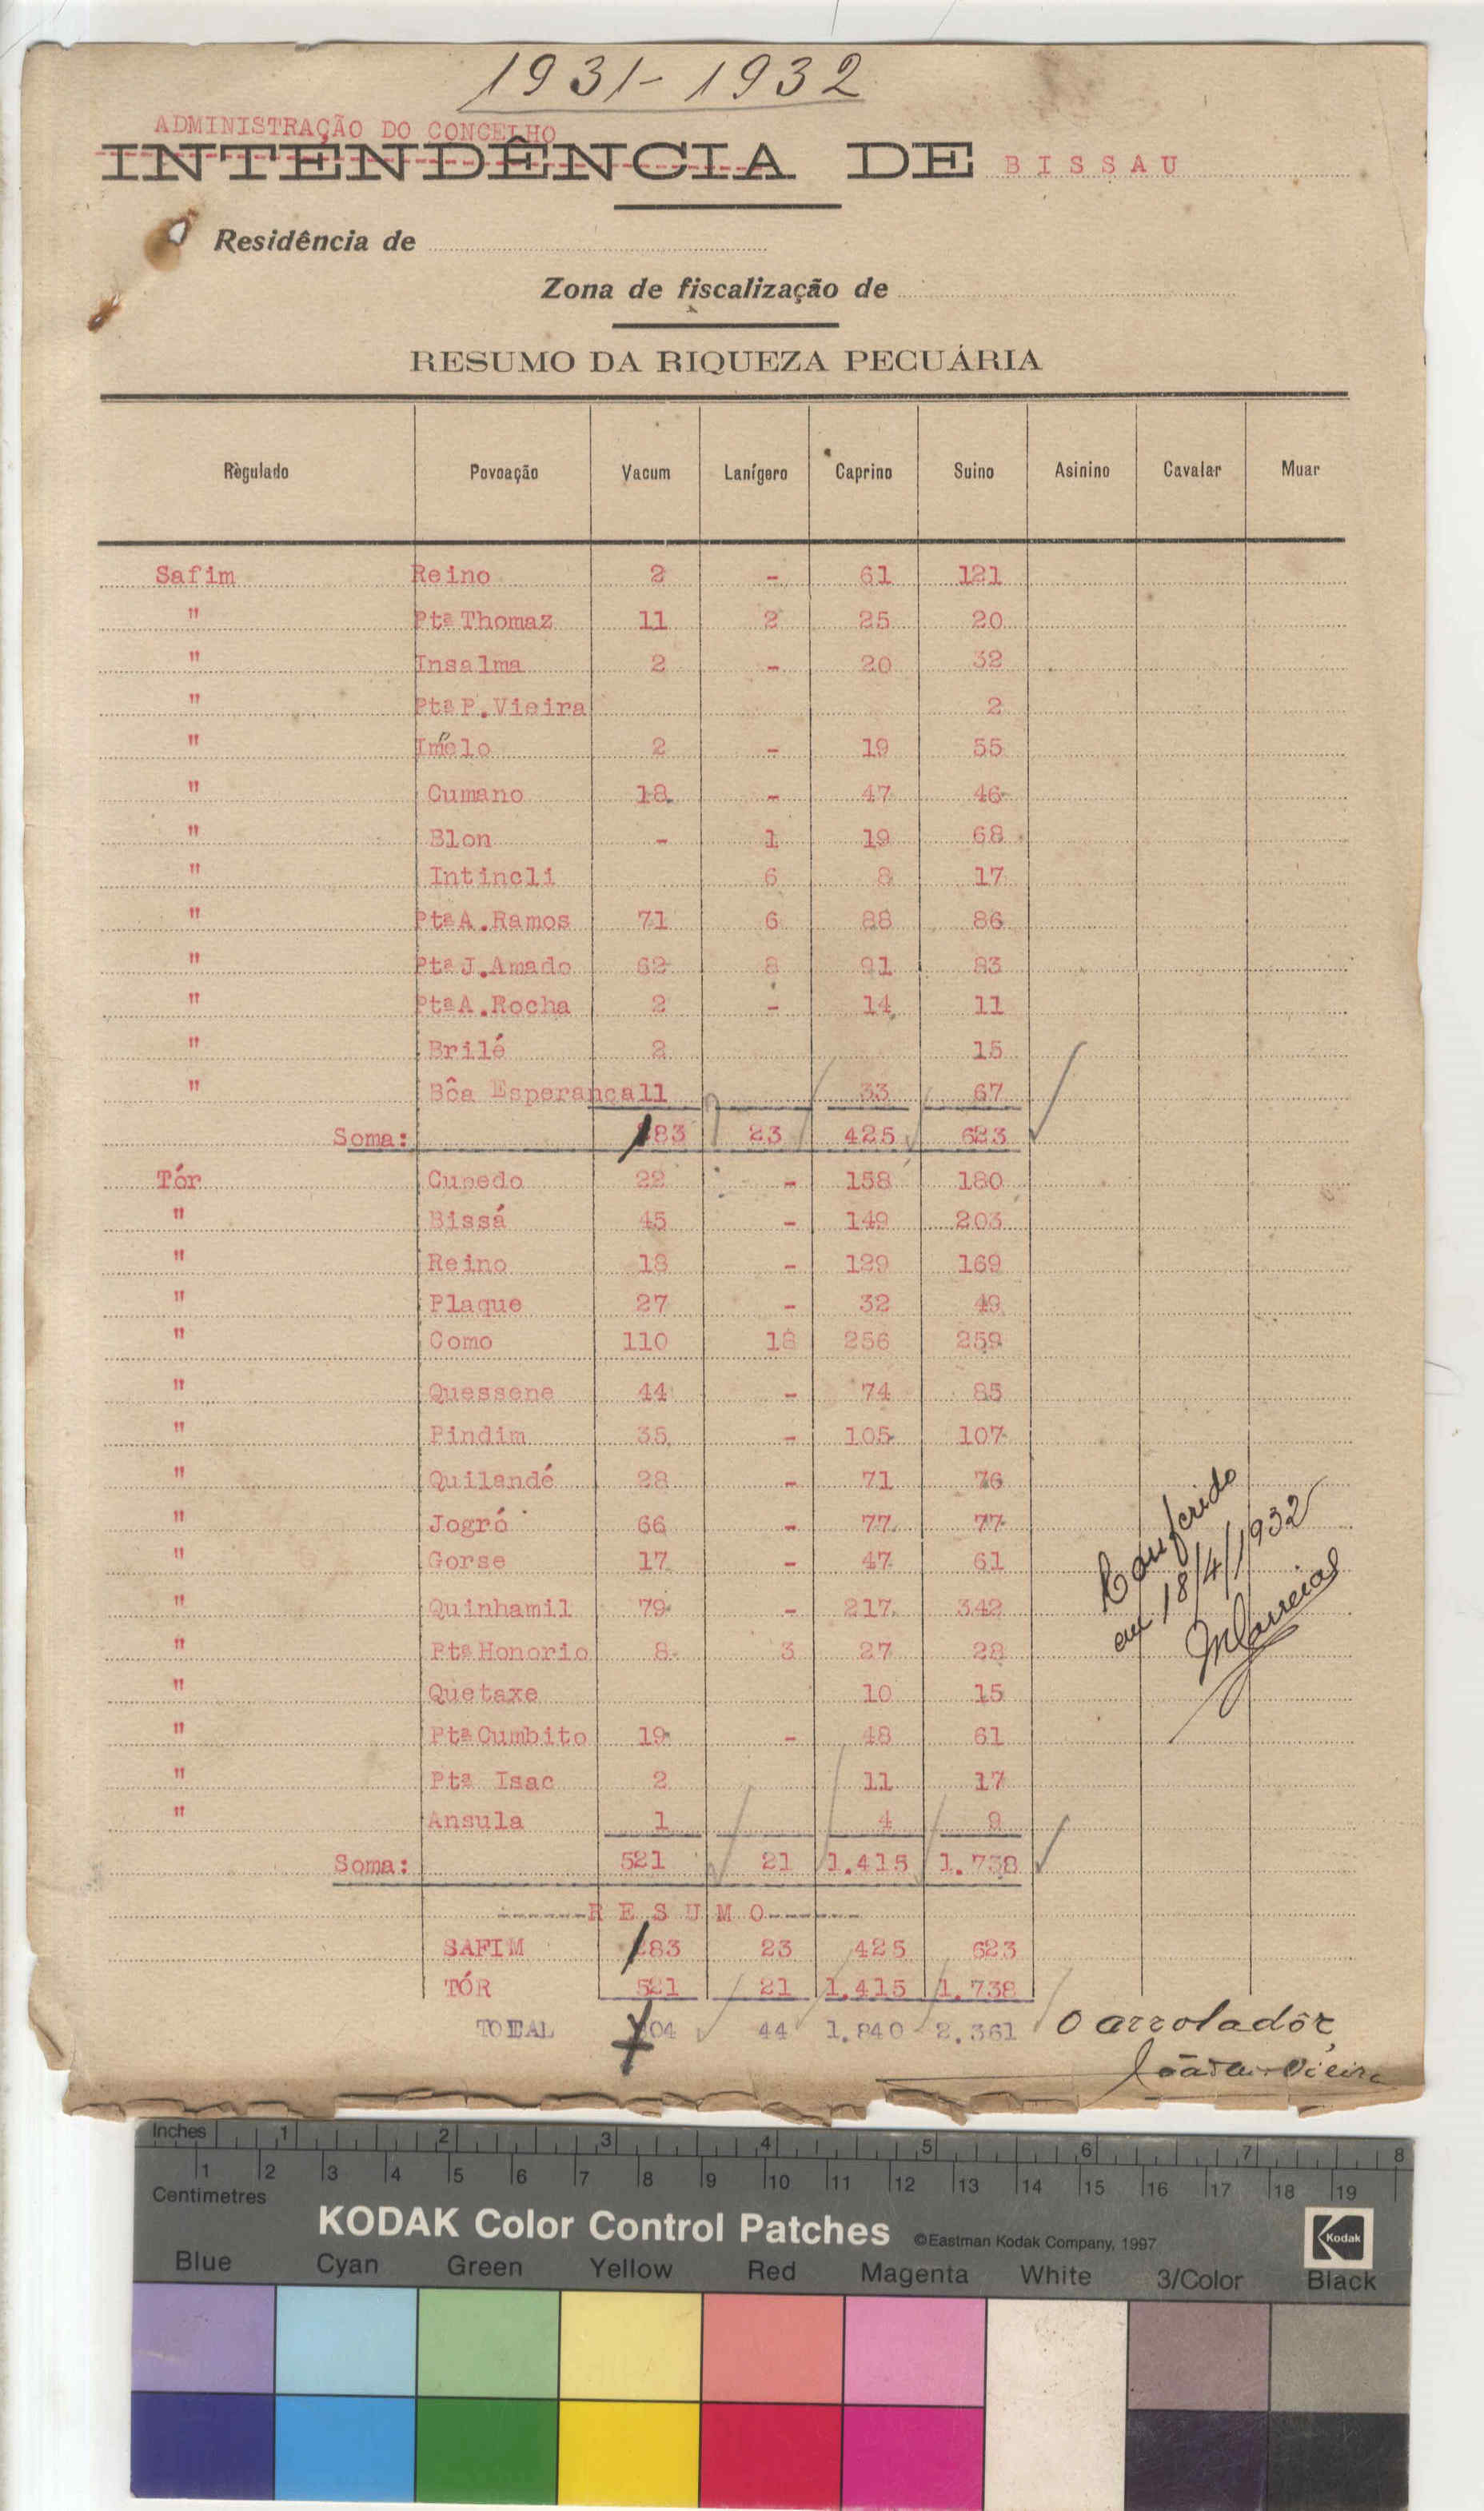 1931-1932
ADMINISTRAÇÃO DO CONCELHO
INTENDÊNCIA DE BISSAU
Residência de
Zona de fiscalização de
RESUMO DA RIQUEZA PECUÁRIA
Règulado Povoação Vacum Lanígero Caprino Suino Asinino Cavalar Muar
Safim Reino 2 - 61 121
" Ptª Thomaz 11 2 25 20
" Insalma 2 - 20 32
" Ptª P. Vieira 2
" Imelo 2 - 19 55
" Cumano 18 - 47 46
" Blon - 1 19 68
" Intincli 6 8 17
" Ptª A. Ramos 71 6 88 86
" Ptª J. Amado 62 8 91 83
" Ptª A. Rocha 2 - 14 11
" Brilé 2 15
" Bôa Esperança 11 33 67
Soma: 183 23 425 623
Tór Cupedo 22 - 158 180
" Bissá 45 - 149 203
" Reino 18 - 129 169
" Plaque 27 - 32 49
" Como 110 18 256 259
" Quessene 44 - 74 85
" Pindim 35 - 105 107
" Quilandé 28 - 71 76
" Jogró 66 - 77 77
" Gorse 17 - 47 61
" Quinhamil 79 - 217 342
" Ptª Honorio 8 3 27 28
" Quetaxe 10 15
" Ptª Cumbito 19 - 48 61
" Ptª Isac 2 11 17
" Ansula 1 4 9
Soma: 521 21 1.415 1.738
------R E S U M O------
SAFIM 183 23 425 623
TÓR 521 21 1.415 1.738
TOTAL 704 44 1.840 2.361
Conferido
em 18/4/1932
O arroladôr,
Vieira
Inches 1 2 3 4 5 6 7 8
1 2 3 4 5 6 7 8 9 10 11 12 13 14 15 16 17 18 19
Centimetres
KODAK Color Control Patches ©Eastman Kodak Company, 1997 Kodak
Blue Cyan Green Yellow Red Magenta White 3/Color Black